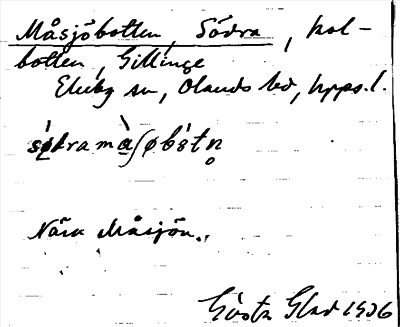 Måsjöbotten, Södra, kol-
botten, Gillinge
Ekeby sn, Olands hd, Upps.l.
Nära Måsjön.
Gösta Glad 1936